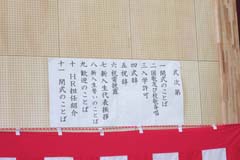 式次第
一 開式のことば
二 国歌及び校歌斉唱
三 入学許可
四 式辞
五 祝辞
六 祝電披露
七 新入生代表挨拶
八 新入生誓いのことば
九 歓迎のことば
十 HR担任紹介
十一 閉式のことば